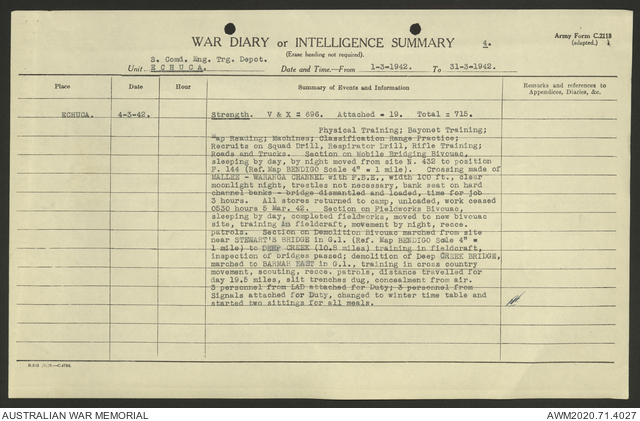 WAR DIARY or INTELLIGENCE SUMMARY
4.
Army Form C.2118
(adapted.)
(Erase heading not required).
S. Comd. Eng. Trg. Depot.
Unit. ECHUCA.
Date and Time.—From 1-3-1942. To 31-3-1942.
Place
Date
Hour
Summary of Events and Information
Remarks and references to
Appendices, Diaries, &c.
ECHUCA.
4-3-42.
Strength. V & X = 696. Attached = 19. Total = 715.
Physical Training; Bayonet Training;
Map Reading; Machines; Classification Range Practice;
Recruits on Squad Drill, Respirator Drill, Rifle Training;
Roads and Trucks. Section on Mobile Bridging Bivouac,
sleeping by day, by night moved from site N. 432 to position
F. 144 (Ref. Map BENDIGO Scale 4" = 1 mile). Crossing made of
MALLEE - WARANGA CHANNEL with F.B.E., width 100 ft., clear
moonlight night, trestles not necessary, bank seat on hard
channel banks - bridge dismantled and loaded, time for job
3 hours. All stores returned to camp, unloaded, work ceased
0530 hours 5 Mar. 42. Section on Fieldworks Bivouac,
sleeping by day, completed fieldworks, moved to new bivouac
site, training in fieldcraft, movement by night, recce.
patrols. Section on Demolition Bivouac marched from site
near STEWART'S BRIDGE in G.1. (Ref. Map BENDIGO Scale 4" =
1 mile) to DEEP CREEK (10.8 miles) training in fieldcraft,
inspection of bridges passed; demolition of Deep CREEK BRIDGE,
marched to BARMAH EAST in G.1., training in cross country
movement, scouting, recce. patrols, distance travelled for
day 19.5 miles, slit trenches dug, concealment from air.
3 personnel from LAD attached for Duty; 3 personnel from
Signals attached for Duty, changed to winter time table and
started two sittings for all meals.
AUSTRALIAN WAR MEMORIAL
AWM2020.71.4027